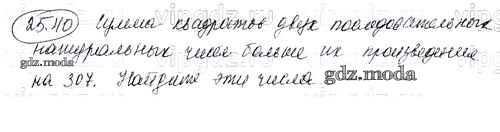 25.40 Сумма квадратов двух последовательных
натуральных чисел больше их произведения
на 307. Найдите эти числа
gdz.moda
gdz.moda